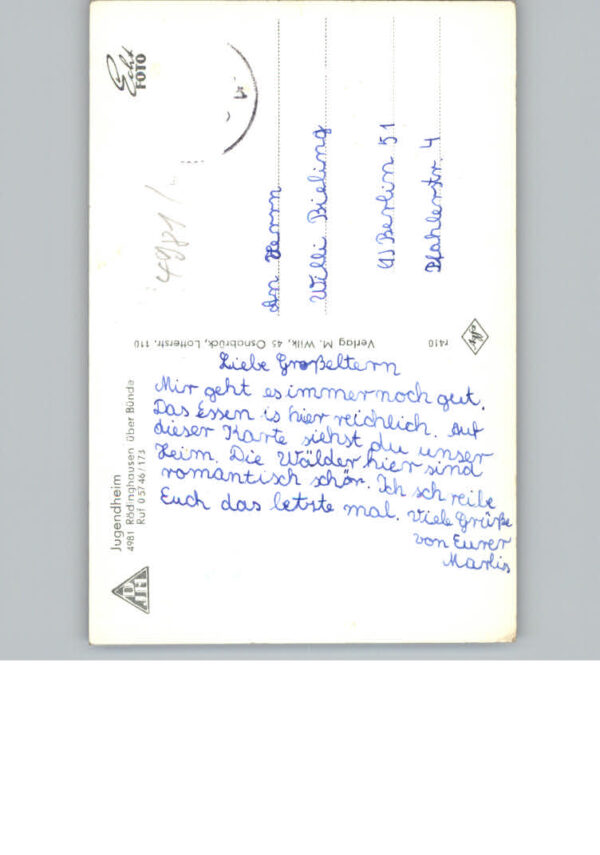 Jugendheim
4981 Rödinghausen über Bünde
Ruf 05746/173
Liebe Großeltern
Mir geht es immer noch gut.
Das Essen is hier reichlich. Auf
dieser Karte siehst du unser
Heim. Die Wälder hier sind
romantisch schön. Ich schreibe
Euch das letzte mal. Viele Grüße
von Eurer
Marlis
Verlag M. Wilk, 45 Osnabrück, Lotterstr. 110
r410
Echt
FOTO
4981/
An Herrn
Willi Bieling
(1) Berlin 51
Pfahlerstr. 4